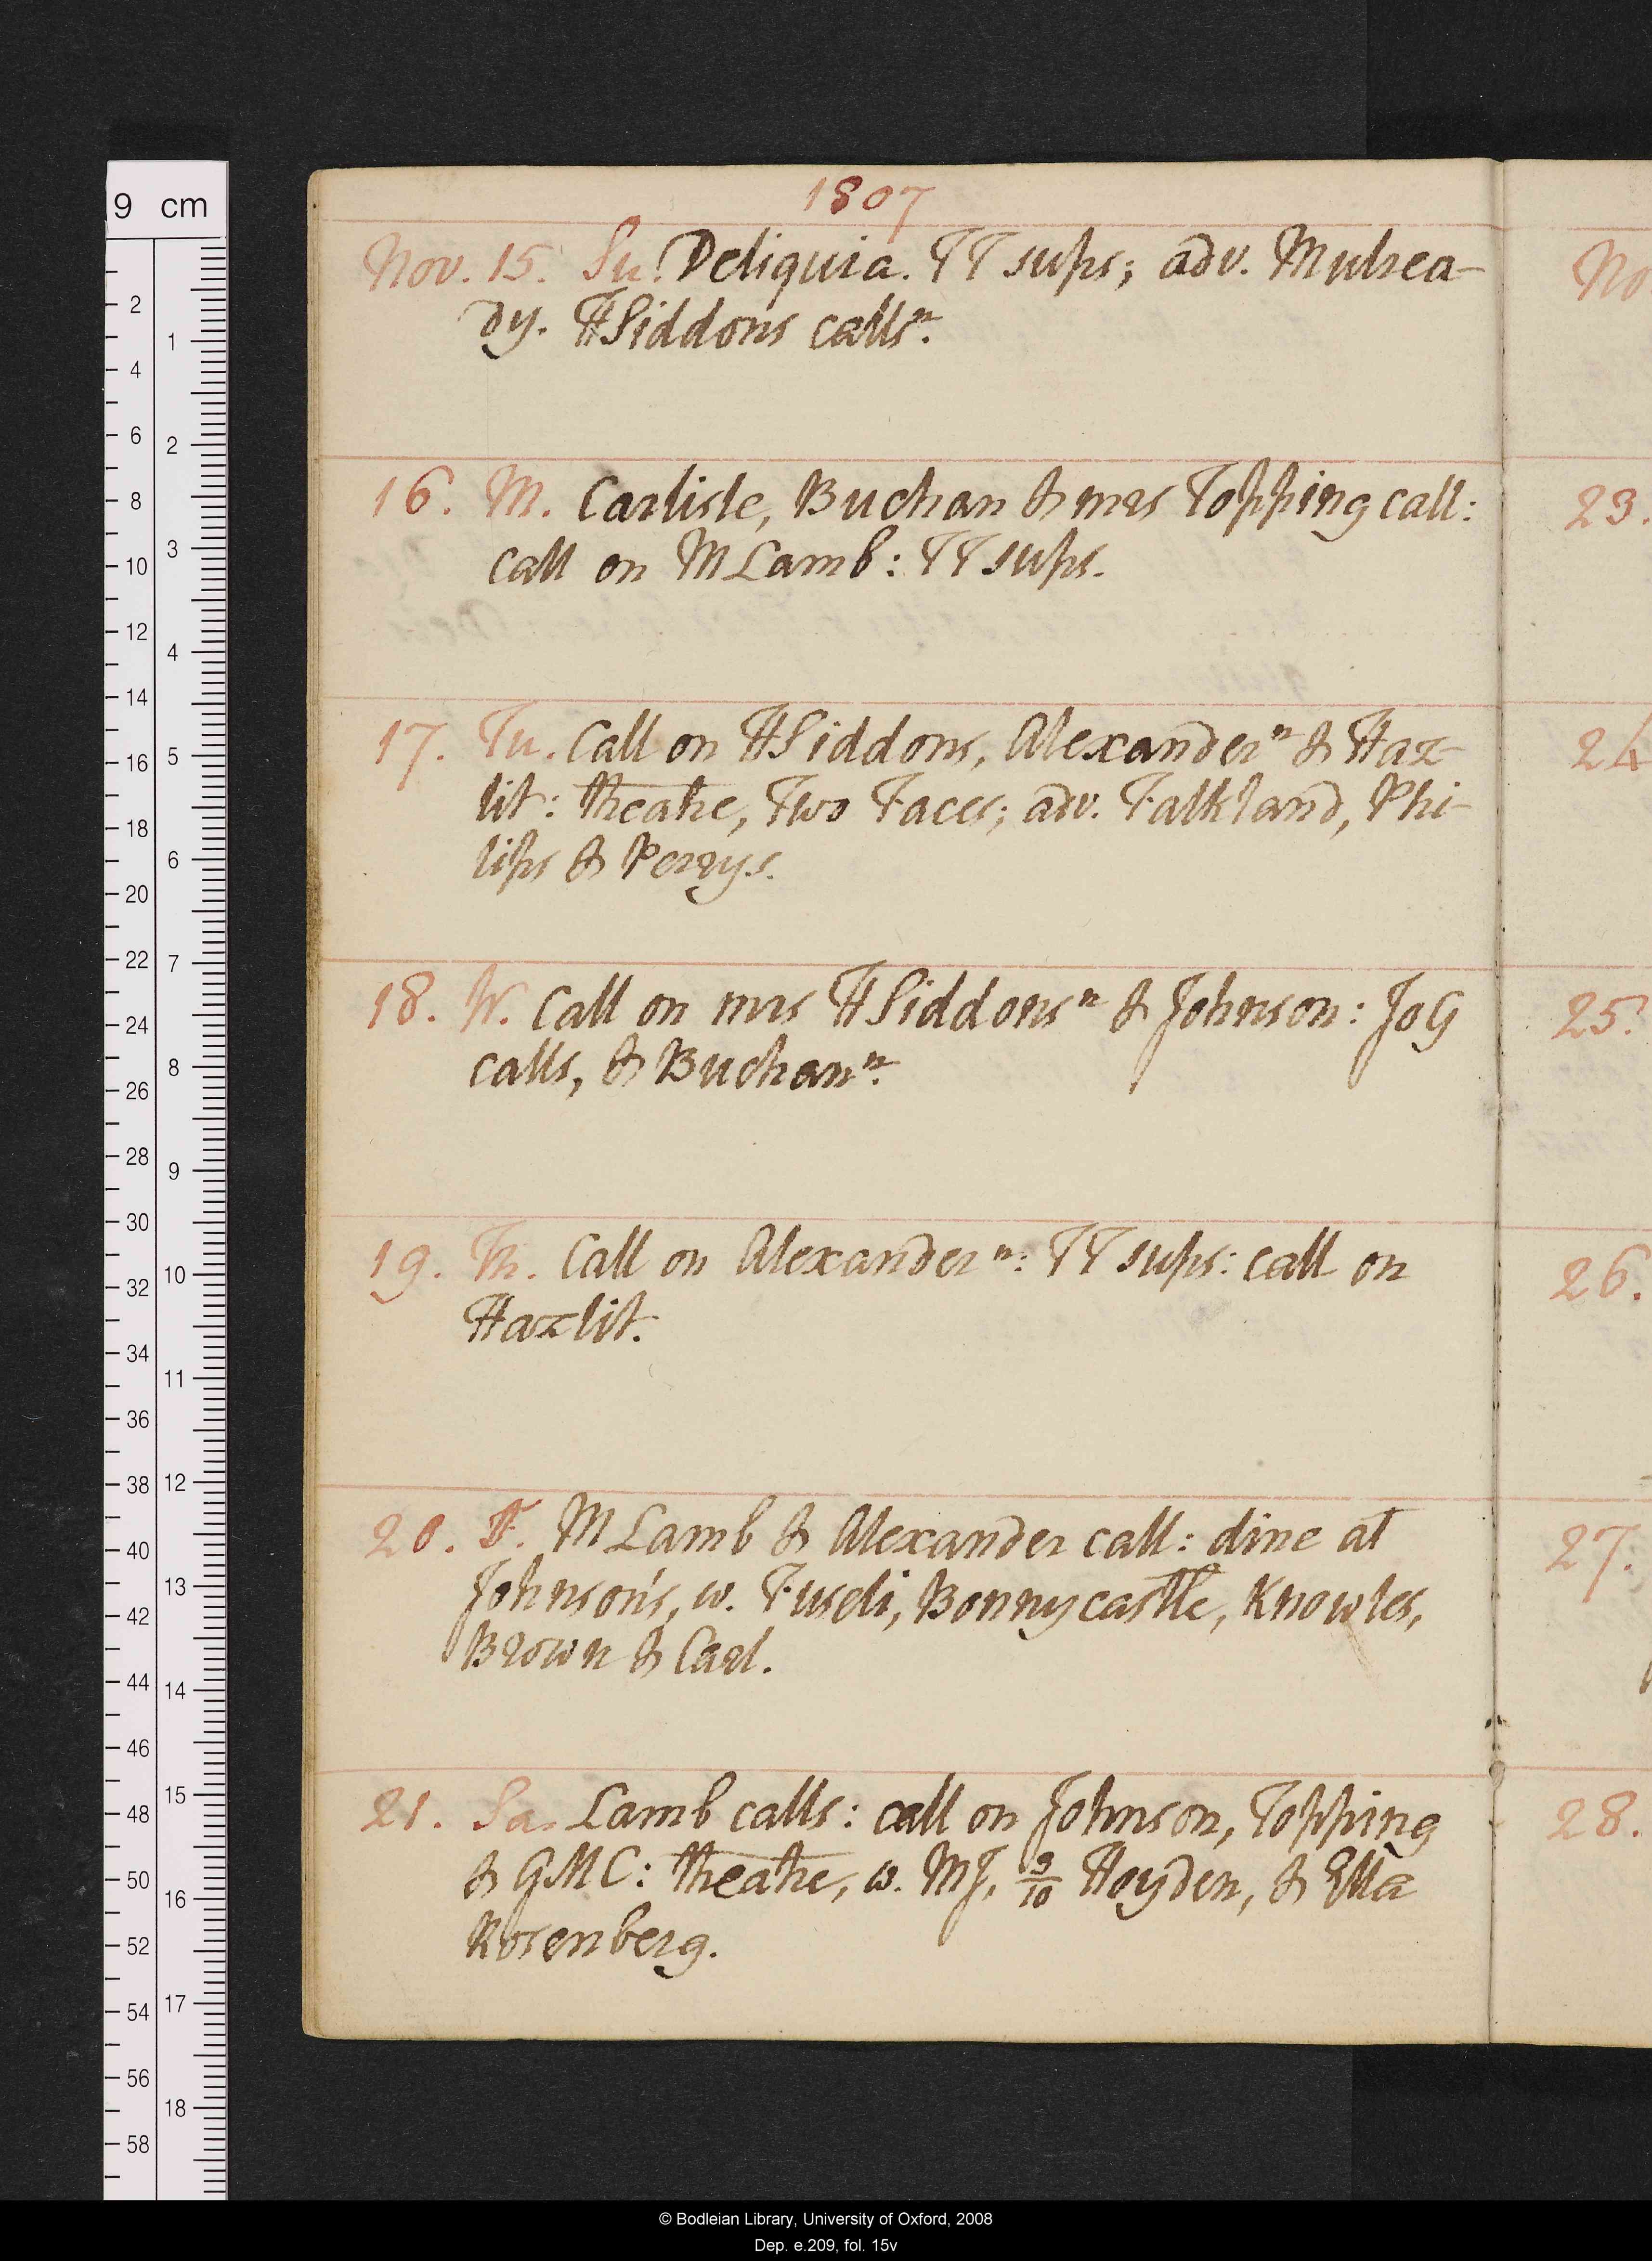 1807
Nov. 15. Su. Deliquia. TT sups; adv. Mulrea-
dy. HSiddons callsⁿ.
16. M. Carlisle, Buchan & mrs Topping call:
call on MLamb: TT sups.
17. Tu. Call on HSiddons, Alexanderⁿ & Haz-
lit: theatre, Two Faces; adv. Falkland, Phi-
lips & Perrys.
18. W. Call on mrs HSiddonsⁿ & Johnson: JoG
calls, & Buchanⁿ.
19. Th. Call on Alexanderⁿ: TT sups: call on
Hazlit.
20. F. MLamb & Alexander call: dine at
Johnson's, w. Fuseli, Bonnycastle, Knowles,
Brown & Carl.
21. Sa. Lamb calls: call on Johnson, Topping
& GMC: theatre, w. MJ, 9/10 Hoyden, & Ella
Rosenberg.
No
23.
24
25.
26.
27.
28.
9 cm
2 4 6 8 10 12 14 16 18 20 22 24 26 28 30 32 34 36 38 40 42 44 46 48 50 52 54 56 58
1 2 3 4 5 6 7 8 9 10 11 12 13 14 15 16 17 18
© Bodleian Library, University of Oxford, 2008
Dep. e.209, fol. 15v